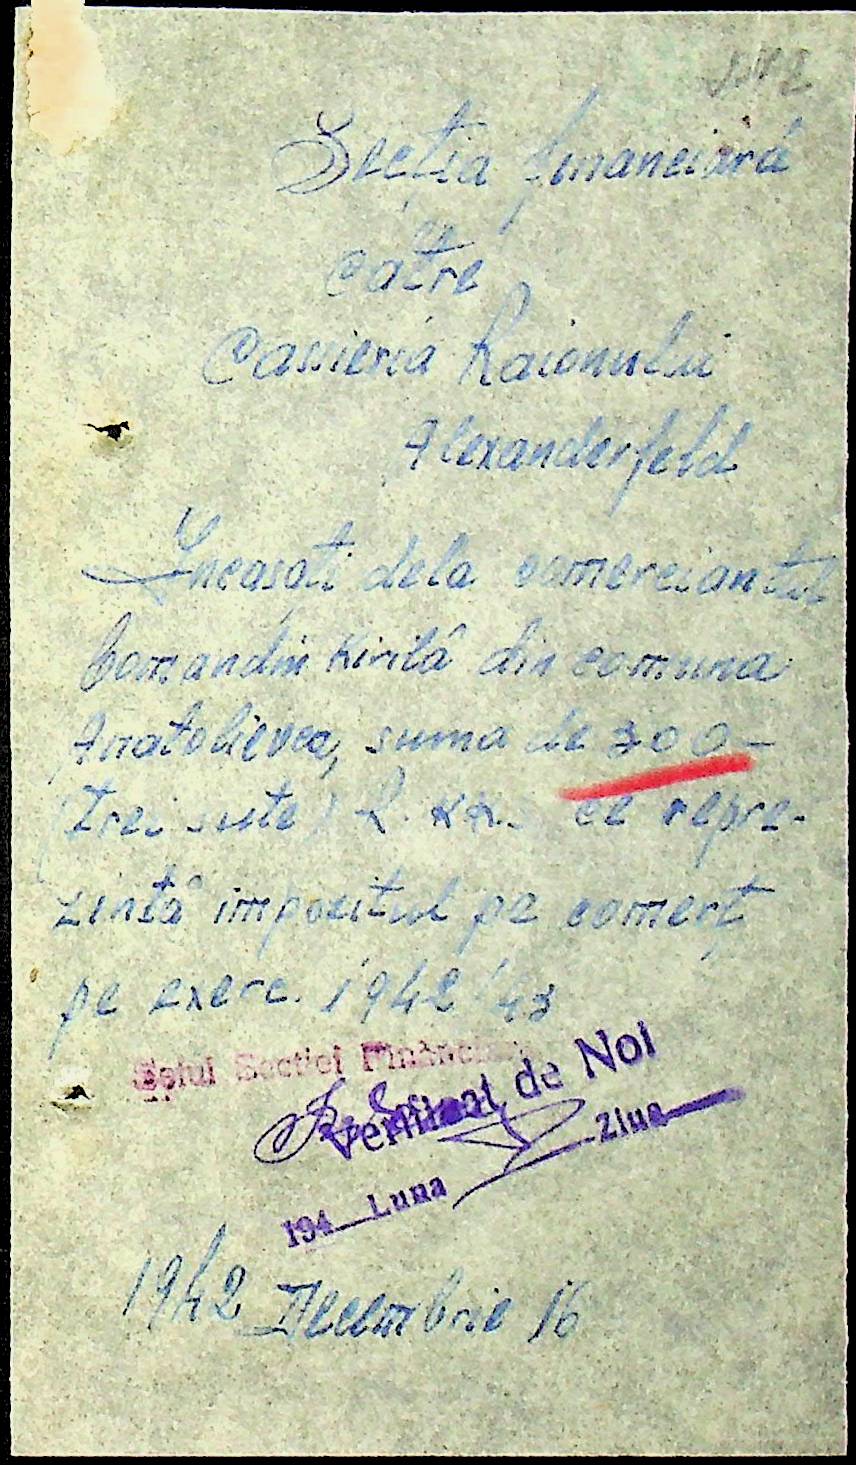 Secția financiară
către
Cassieria Raionului
Alexanderfeld
Încasați dela comerciantul
Comandin Kirilă din comuna
Anatolievca, suma de 300-
(trei sute) R.KK.S ce repre-
zintă impozitul pe comerț
pe exerc. 1942/43
Șeful Secției Financiare
Verificat de Noi
194 Luna Ziua
1942 Decembrie 16